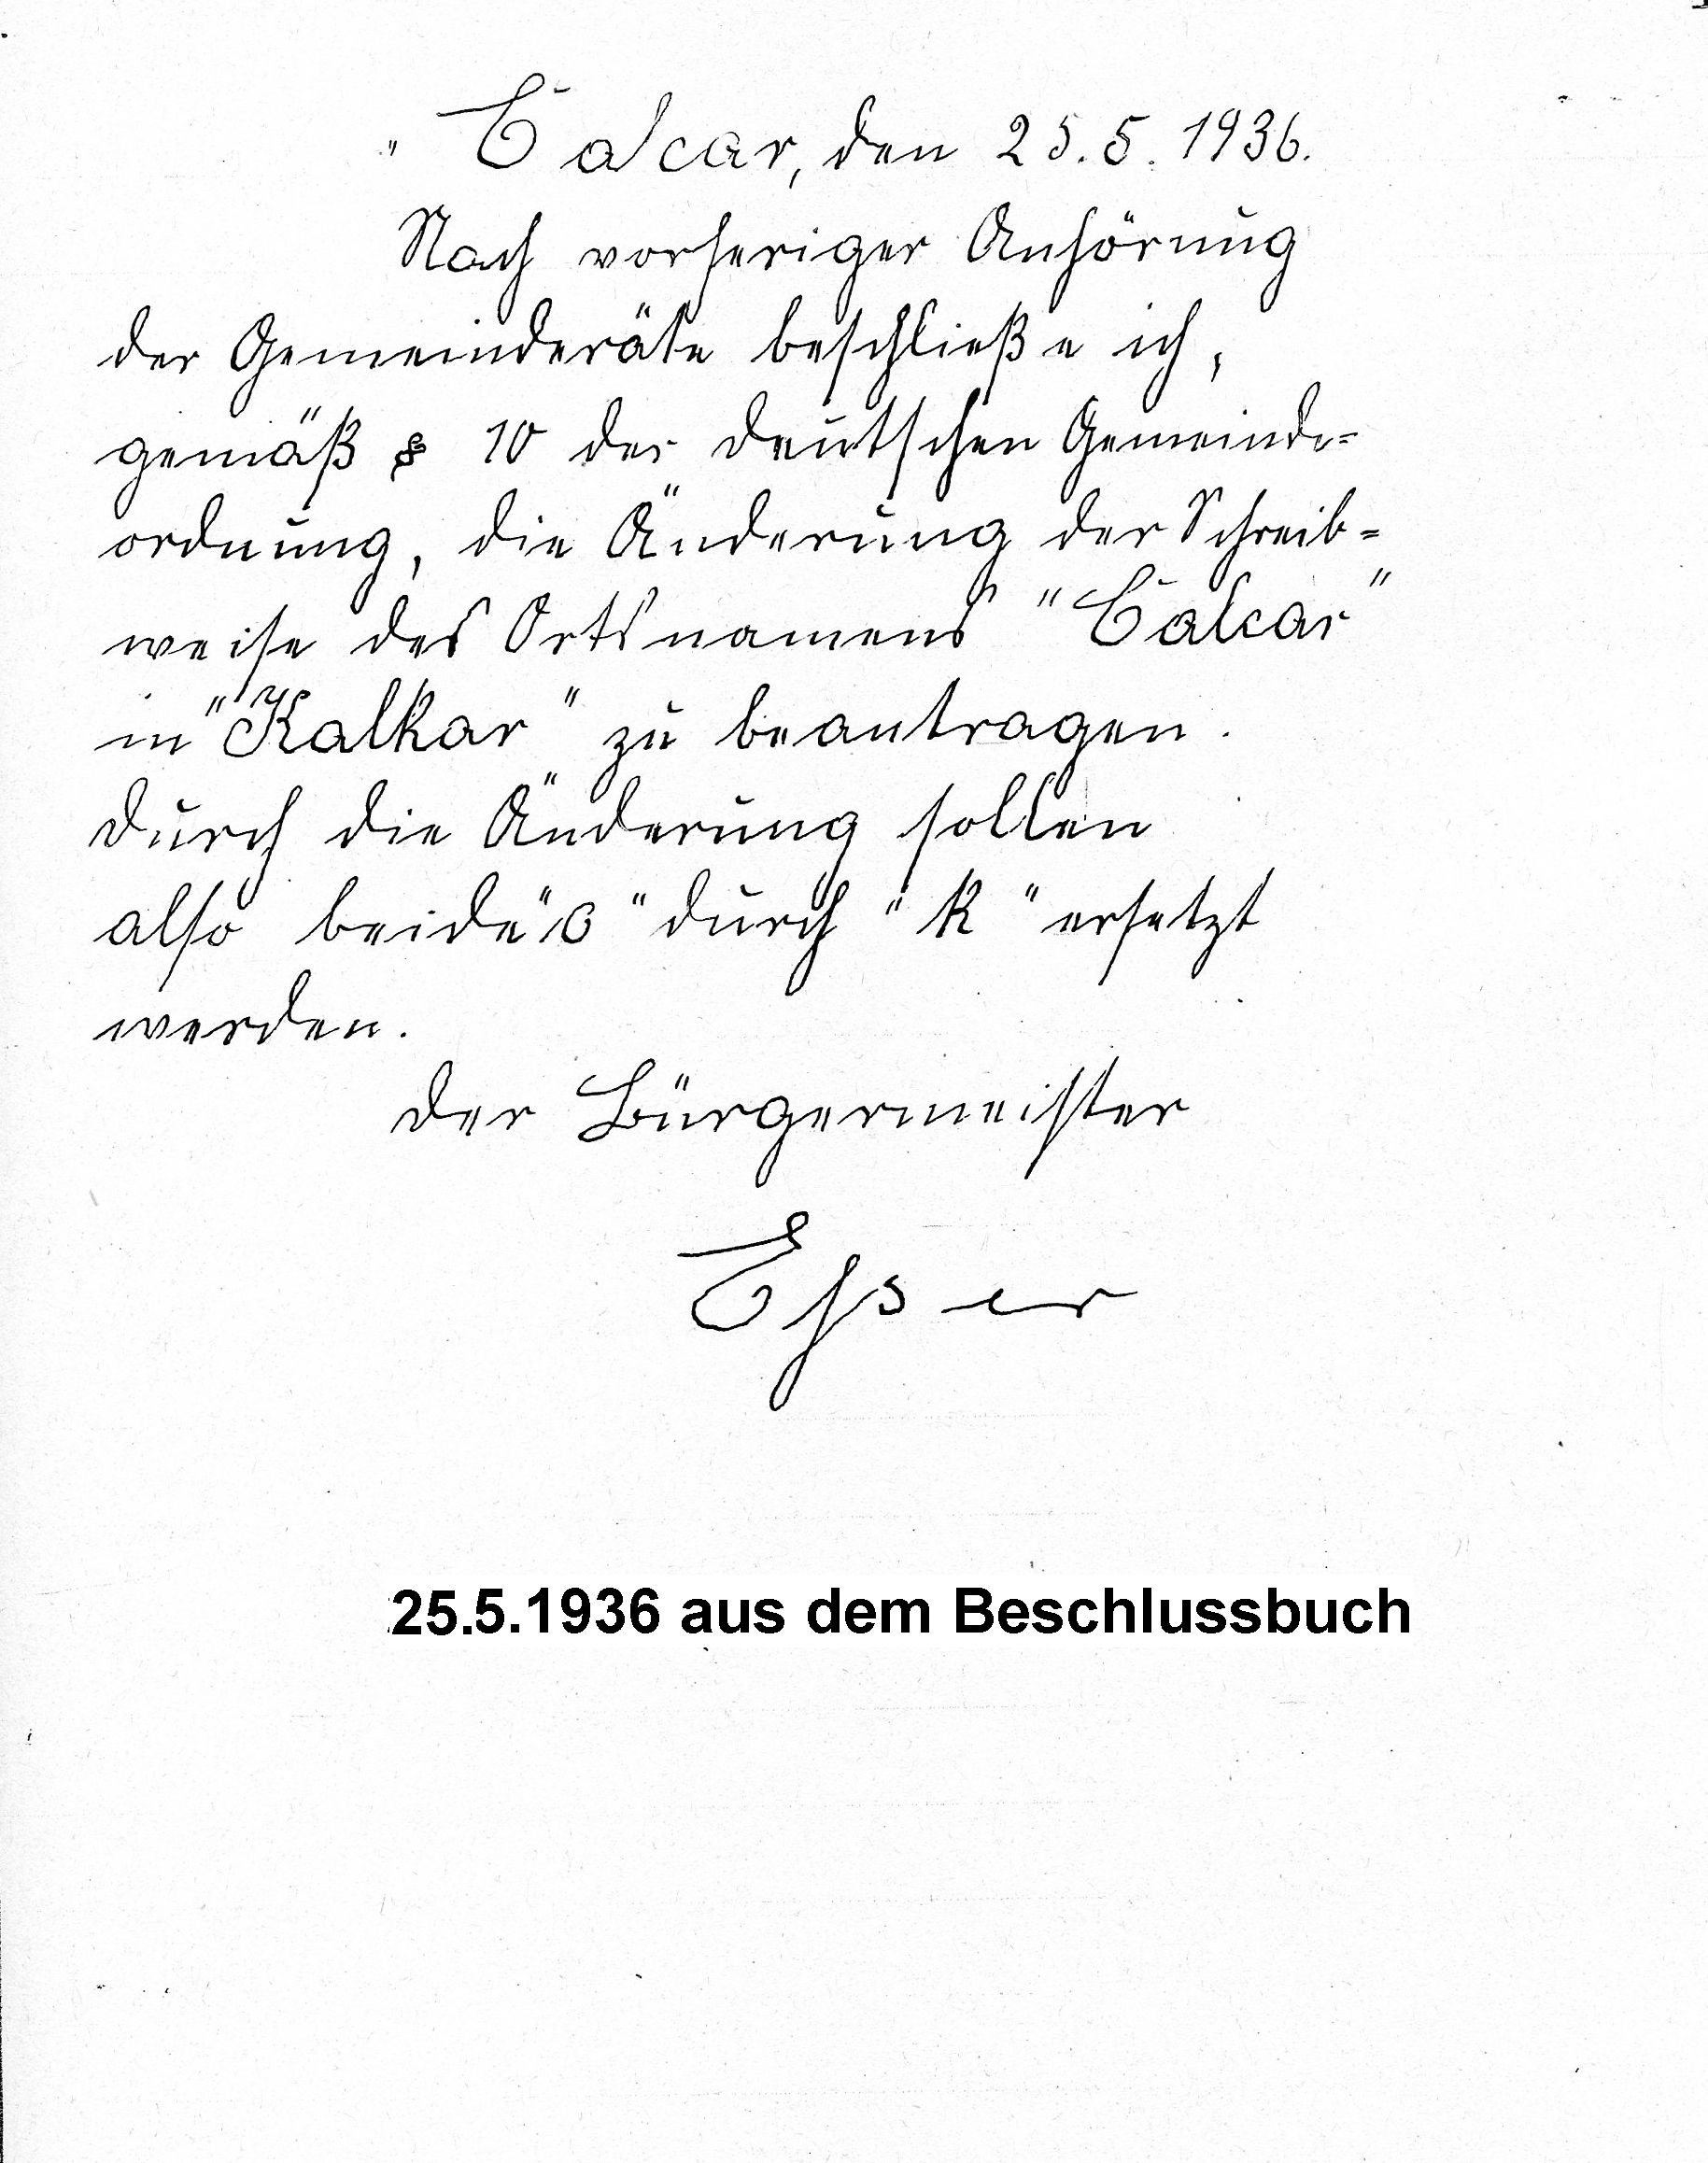 " Calcar, den 25.5.1936.
Nach vorheriger Anhörung
der Gemeinderäte beschließe ich,
gemäß § 10 der deutschen Gemeinde=
ordnung, die Änderung der Schreib=
weise des Ortsnamens "Calcar"
in "Kalkar" zu beantragen.
Durch die Änderung sollen
also beide "C" durch "K" ersetzt
werden.
Der Bürgermeister
Esser
25.5.1936 aus dem Beschlussbuch